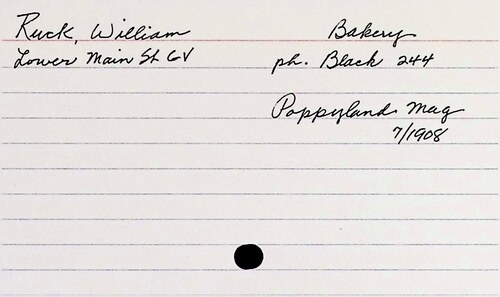 Ruck, William
Bakery
Lower Main St GV
ph. Black 244
Poppyland Mag
7/1908